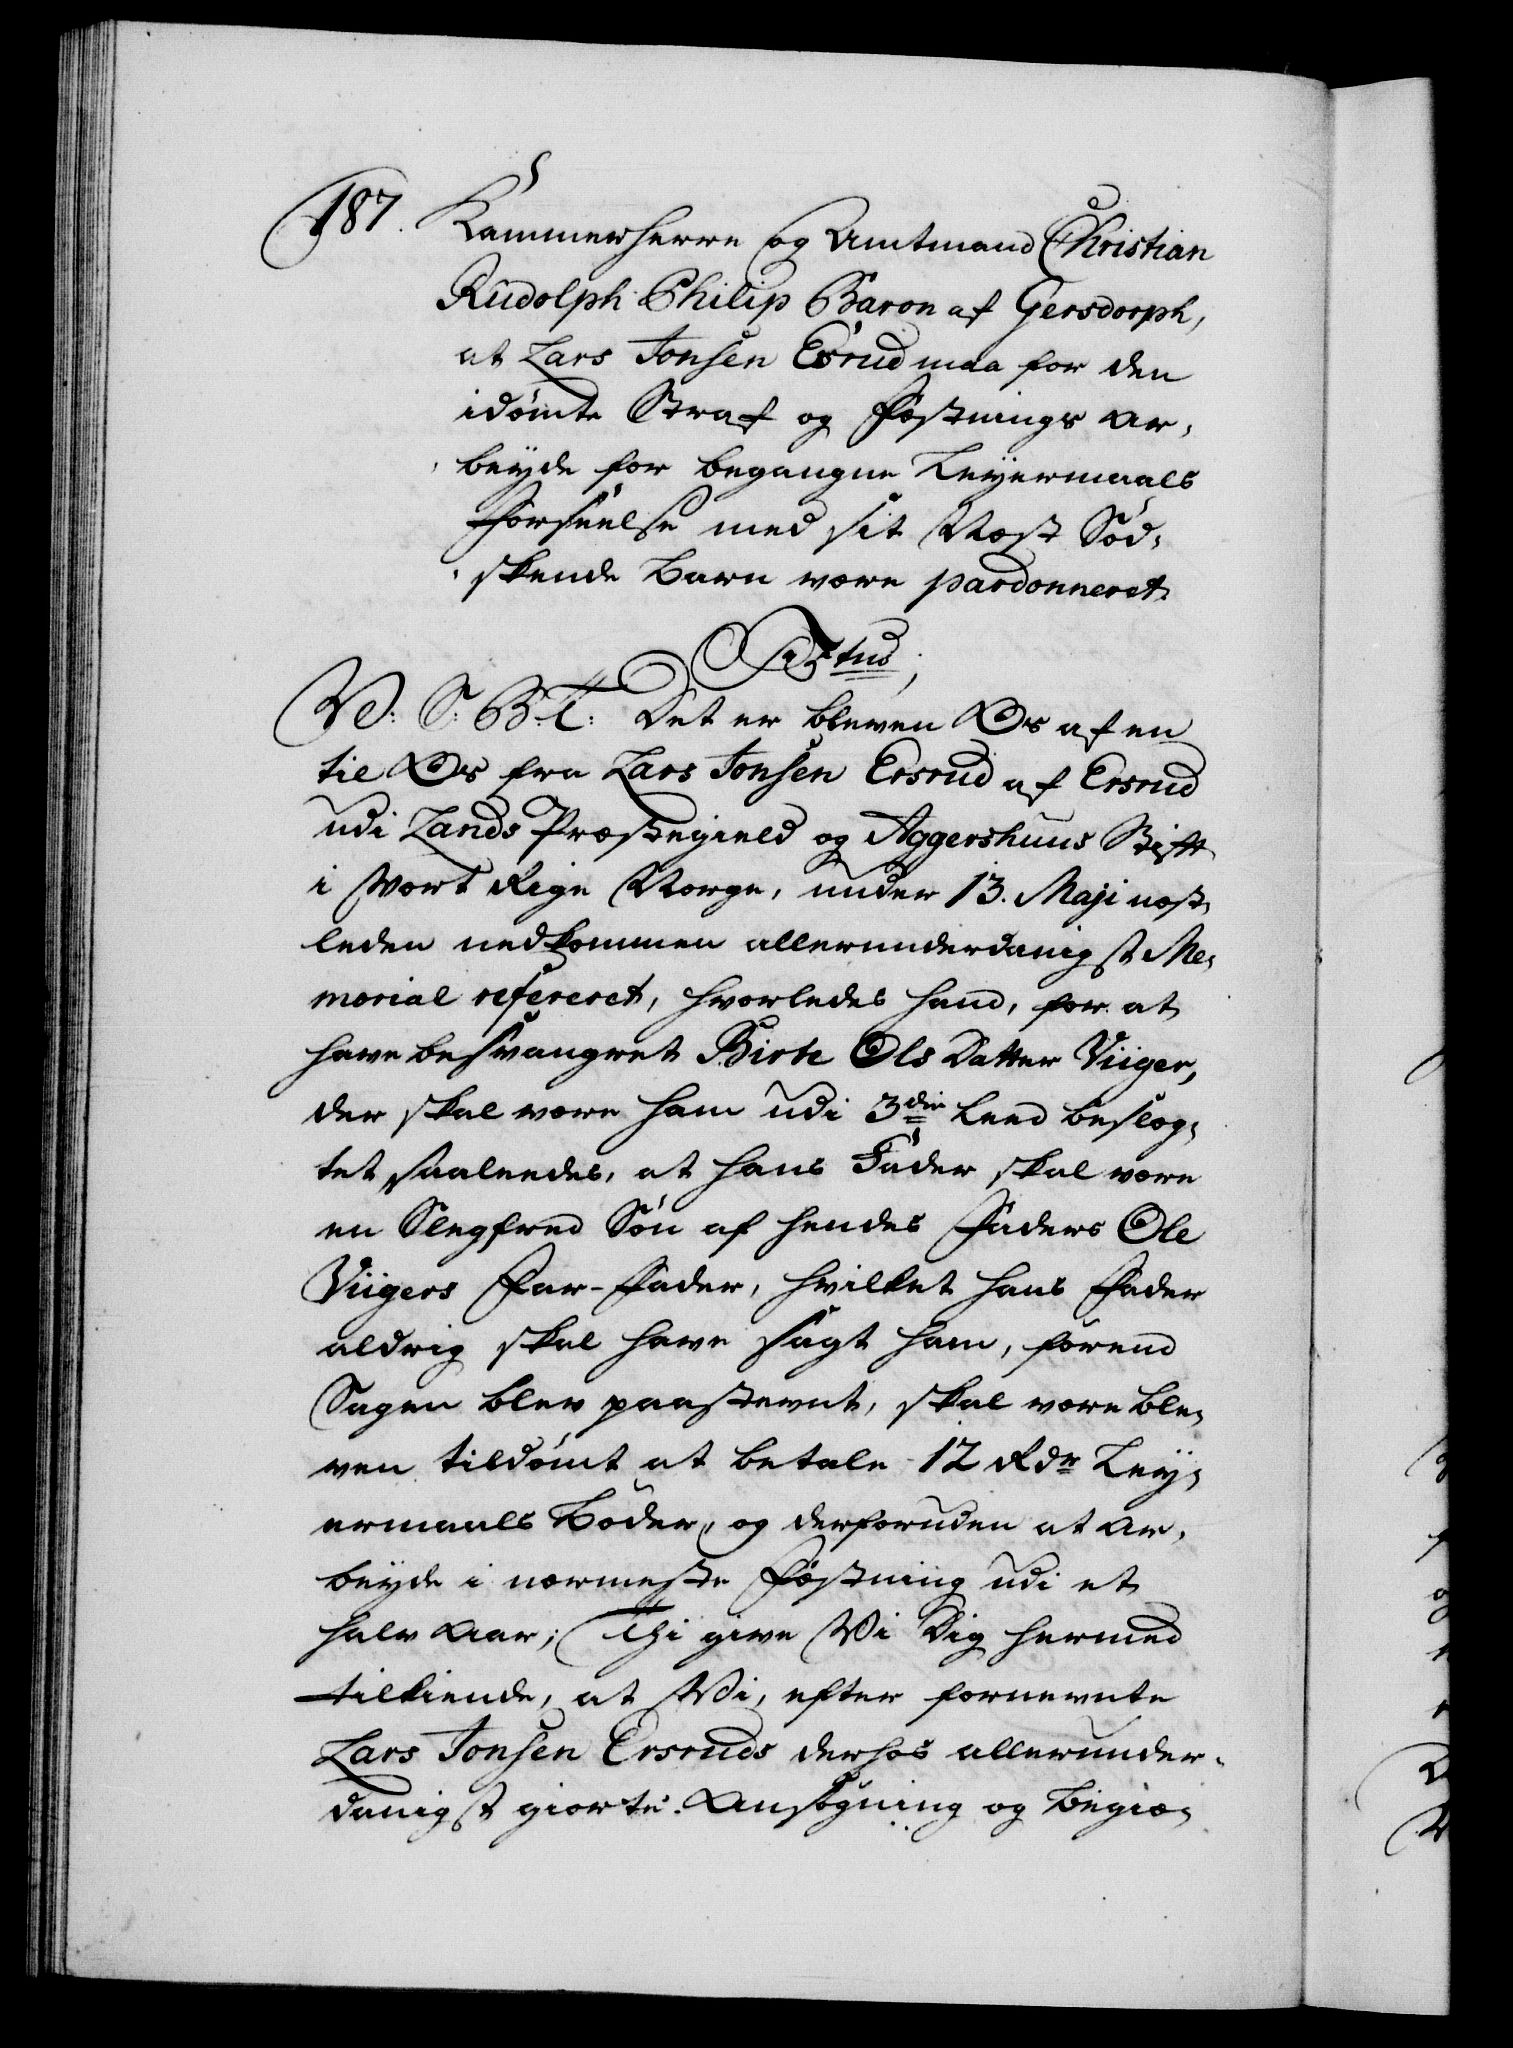 187. Kammerherre og Amtmand Christian
Rudolph Philip Baron af Gersdorph,
at Lars Jonsen Esrud maa for den
idømte Straf og Fæstnings Ar-
beyde for begangne Leyermaals
Forseelse med sit Næst Sød-
skende Barn være pardonneret.
V: S: B: T: Det er bleven Os af en
til Os fra Lars Jonsen Ersrud af Ersrud
udi Lands Præstegield og Aggershuus Stift
i Vort Rige Norge, under 13. Maji næst-
leden nedkommen allerunderdanigst Me-
morial refereret, hvorledes hand, for at
have besvangret Birte Ols Datter Viiger,
der skal være ham udi 3die Leed beslæg-
tet saaleedes, at hans Fader skal være
en Slegfred Søn af hendes Faders Ole
Viigers Far-Fader, hvilket hans Fader
aldrig skal have sagt ham, førend
Sagen blev paastevnt, skal være ble-
ven tildømt at betale 12 Rdr Ley-
ermaals Bøder, og derforuden at Ar-
beyde i nærmeste Fæstning udi et
halv Aar; Thi give Vi Dig hermed
tilkiende, at Vi, efter fornevnte
Lars Jonsen Ersruds derhos allerunder-
danigst giorte Ansøgning og Begiæ-